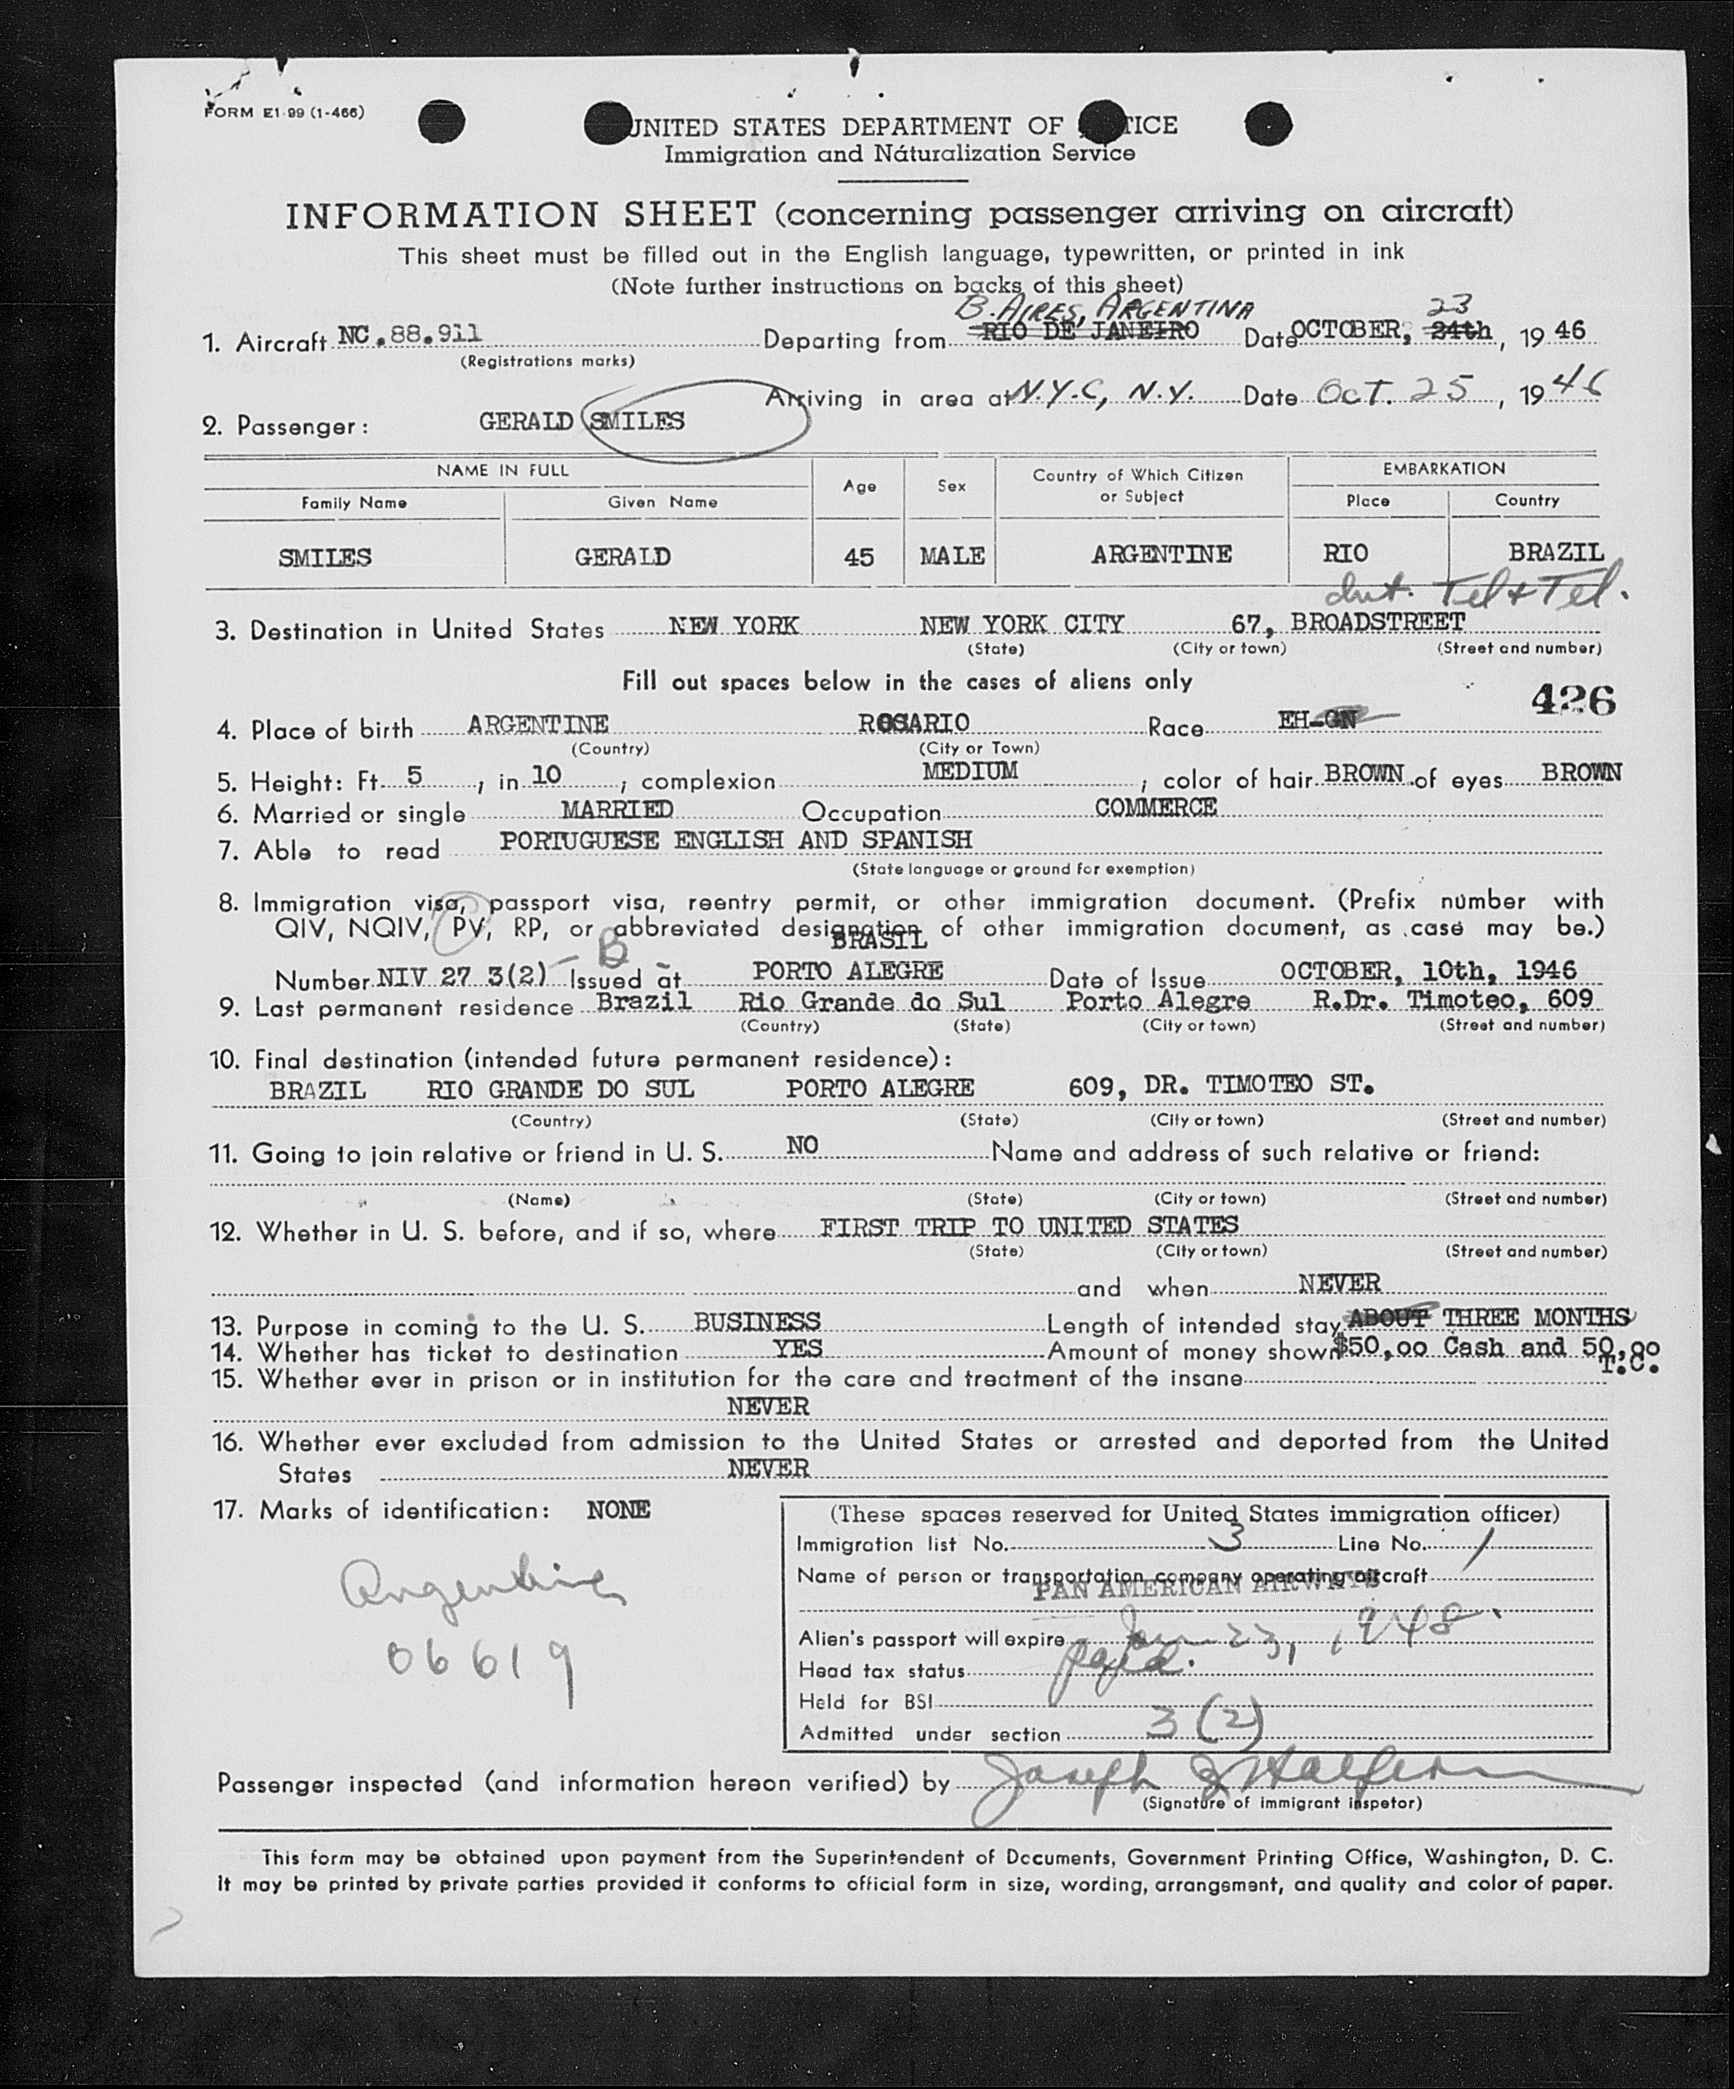 FORM E1-99 (1-466)
UNITED STATES DEPARTMENT OF TICE
Immigration and Náturalization Service
INFORMATION SHEET (concerning passenger arriving on aircraft)
This sheet must be filled out in the English language, typewritten, or printed in ink
(Note further instructions on backs of this sheet)
B. AIRES, ARGENTINA 23
1. Aircraft NC.88.911 Departing from RIO DE JANEIRO Date OCTOBER, 24th, 1946
(Registrations marks)
Arriving in area at N.Y.C, N.Y. Date OCT. 25, 1946
2. Passenger: GERALD SMILES
NAME IN FULL Age Sex Country of Which Citizen or Subject EMBARKATION
Family Name Given Name Place Country
SMILES GERALD 45 MALE ARGENTINE RIO BRAZIL
Tel & Tel.
3. Destination in United States NEW YORK NEW YORK CITY 67, BROADSTREET
(State) (City or town) (Street and number)
Fill out spaces below in the cases of aliens only
426
4. Place of birth ARGENTINE ROSARIO Race EH-GN
(Country) (City or Town)
5. Height: Ft. 5, in 10; complexion MEDIUM; color of hair BROWN of eyes BROWN
6. Married or single MARRIED Occupation COMMERCE
7. Able to read PORTUGUESE ENGLISH AND SPANISH
(State language or ground for exemption)
8. Immigration visa, passport visa, reentry permit, or other immigration document. (Prefix number with
QIV, NQIV, PV, RP, or abbreviated designation of other immigration document, as case may be.)
BRASIL
Number NIV 27 3(2) - B Issued at PORTO ALEGRE Date of Issue OCTOBER, 10th, 1946
9. Last permanent residence Brazil Rio Grande do Sul Porto Alegre R.Dr. Timoteo, 609
(Country) (State) (City or town) (Street and number)
10. Final destination (intended future permanent residence):
BRAZIL RIO GRANDE DO SUL PORTO ALEGRE 609, DR. TIMOTEO ST.
(Country) (State) (City or town) (Street and number)
11. Going to join relative or friend in U. S. NO Name and address of such relative or friend:
(Name) (State) (City or town) (Street and number)
12. Whether in U. S. before, and if so, where FIRST TRIP TO UNITED STATES
(State) (City or town) (Street and number)
and when NEVER
13. Purpose in coming to the U. S. BUSINESS Length of intended stay ABOUT THREE MONTHS
14. Whether has ticket to destination YES Amount of money shown $50,oo Cash and 50,oo
T.C.
15. Whether ever in prison or in institution for the care and treatment of the insane
NEVER
16. Whether ever excluded from admission to the United States or arrested and deported from the United
States NEVER
17. Marks of identification: NONE
(These spaces reserved for United States immigration officer)
Immigration list No. 3 Line No. 1
Name of person or transportation company operating aircraft
PAN AMERICAN AIRWAYS
Argentine
06619
Alien's passport will expire Jan 23, 1948.
Head tax status paid.
Held for BSI
Admitted under section 3 (2)
Passenger inspected (and information hereon verified) by Joseph J Halpern
(Signature of immigrant inspetor)
This form may be obtained upon payment from the Superintendent of Documents, Government Printing Office, Washington, D. C.
It may be printed by private parties provided it conforms to official form in size, wording, arrangement, and quality and color of paper.